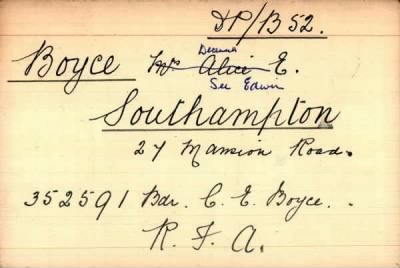 DP/B 52.
Deceased
Boyce Mrs Alice E.
See Edwin
Southampton
27 Mansion Road.
352591 Bdr. C. E. Boyce.
R. F. A.